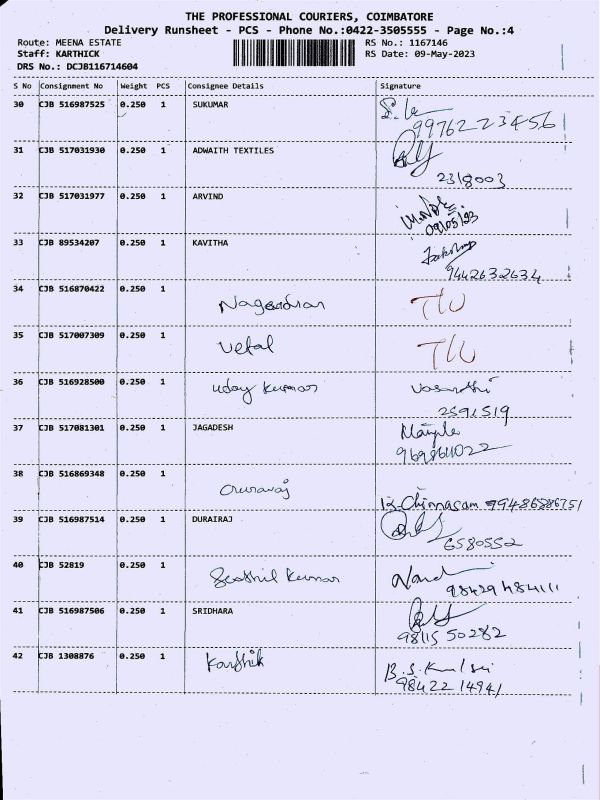 THE PROFESSIONAL COURIERS, COIMBATORE
Delivery Runsheet - PCS - Phone No.:0422-3505555 - Page No.:4
Route: MEENA ESTATE RS No.: 1167146
Staff: KARTHICK RS Date: 09-May-2023
DRS No.: DCJB116714604
S No Consignment No Weight PCS Consignee Details Signature
30 CJB 516987525 0.250 1 SUKUMAR
9976223456
31 CJB 517031930 0.250 1 ADWAITH TEXTILES
2318003
32 CJB 517031977 0.250 1 ARVIND
09/05/23
33 CJB 89534207 0.250 1 KAVITHA
9442632634
34 CJB 516870422 0.250 1
35 CJB 517007309 0.250 1 Vetal
36 CJB 516928500 0.250 1 Uday Kumar Vasandhi
2591519
37 CJB 517081301 0.250 1 JAGADESH
38 CJB 516869348 0.250 1
39 CJB 516987514 0.250 1 DURAIRAJ
6580552
40 CJB 52819 0.250 1 Senthil Kumar
41 CJB 516987506 0.250 1 SRIDHARA
98115 50282
42 CJB 1308876 0.250 1 Karthik
98422 14941